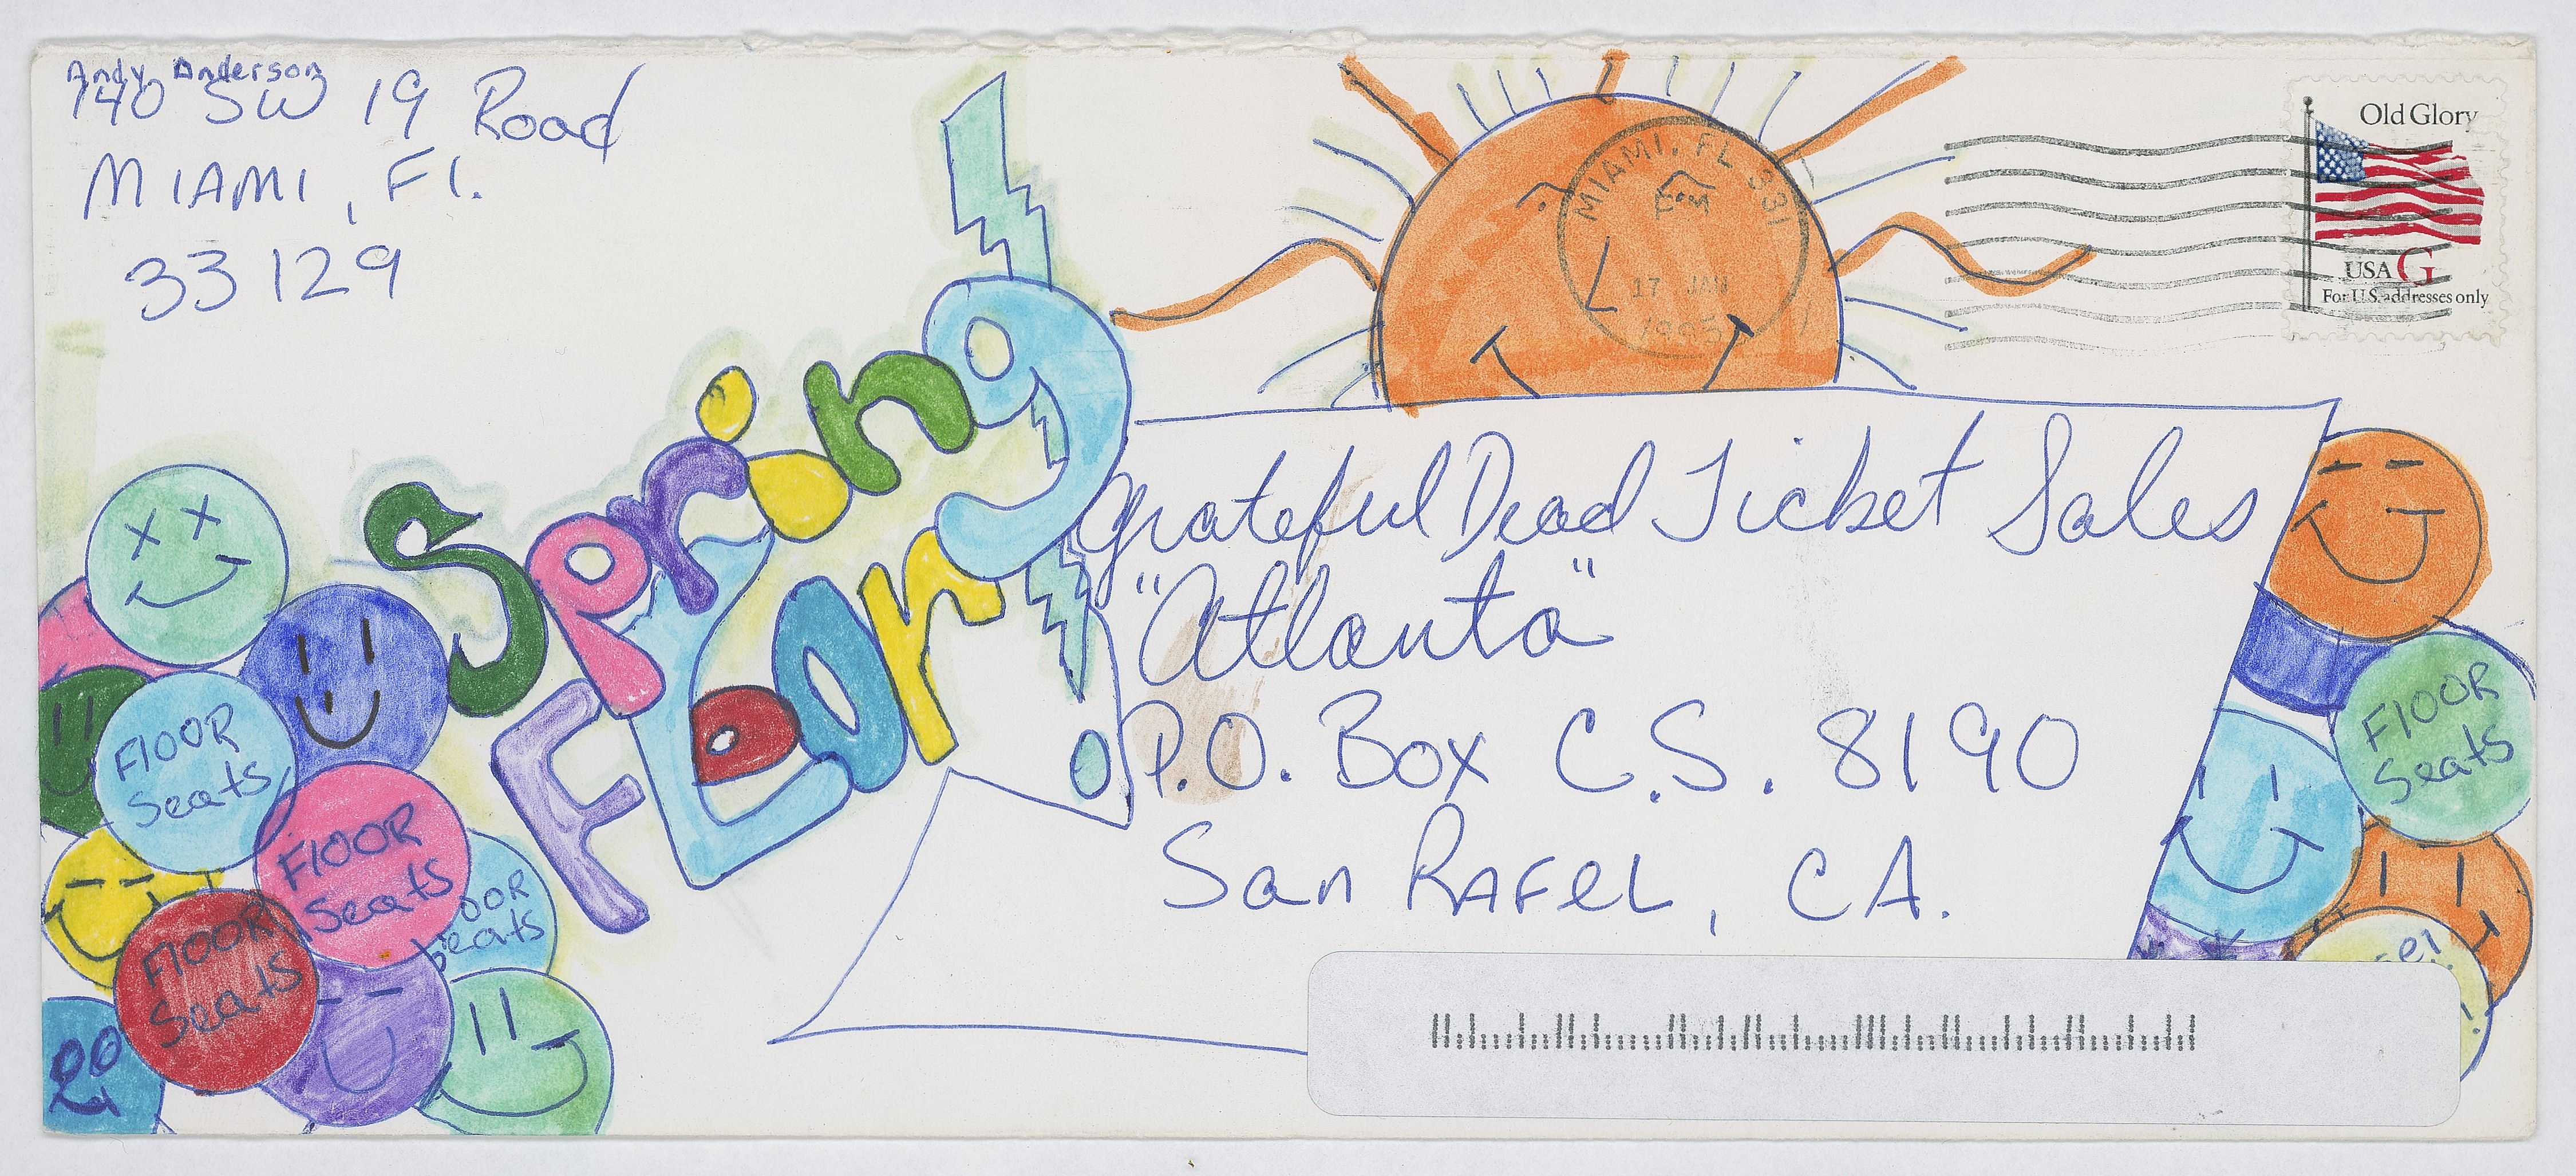 Andy Anderson
140 SW 19 Road
MIAMI, Fl.
33129
MIAMI, FL 331
PM
17 JAN
1995
Old Glory
USA G
For U.S. addresses only
Spring
Floor
Grateful Dead Ticket Sales
"Atlanta"
P.O. Box C.S. 8190
San RAFEL, CA.
FlOOR
Seats
FlOOR
Seats
OOR
eats
FlOOR
Seats
FlOOR
Seats